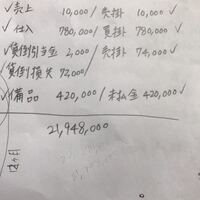 ✓売上 10,000 / 売掛 10,000 ✓
✓仕入 780,000 / 買掛 780,000 ✓
✓貸倒引当金 2,000 / 売掛 74,000 ✓
貸倒損失 72,000
✓備品 420,000 / 未払金 420,000 ✓
21,948,000